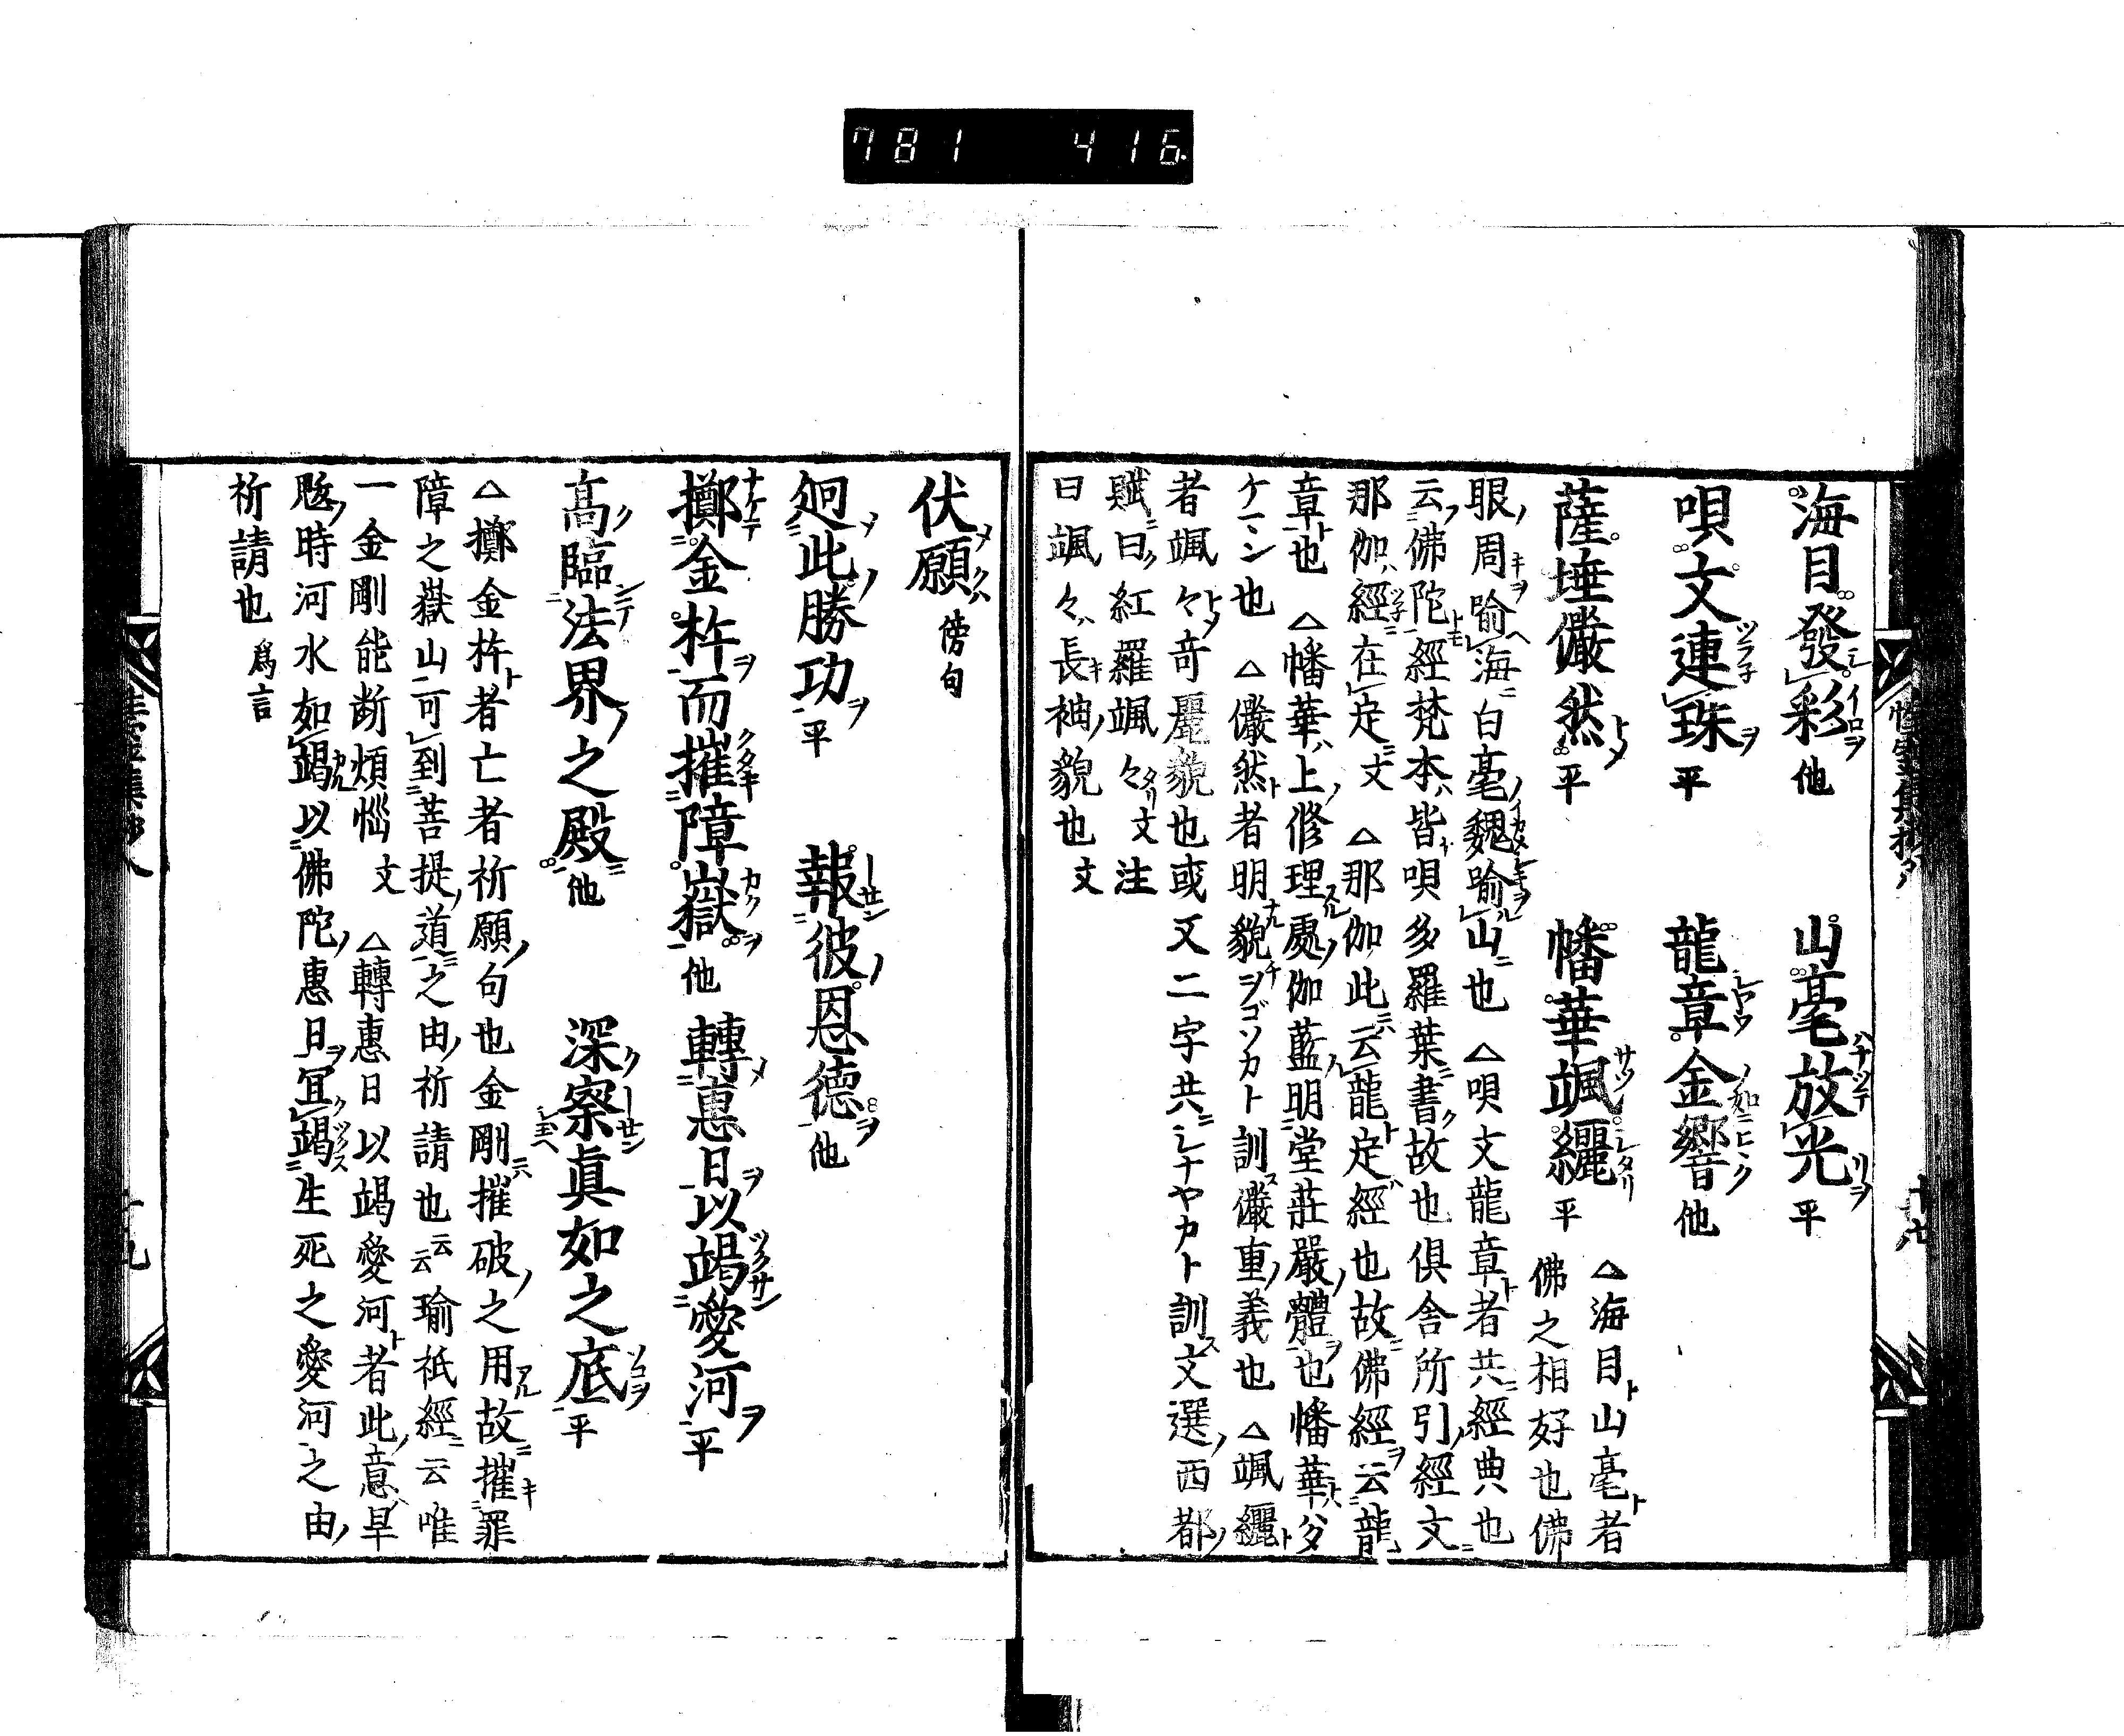 781 416
海目發彩 他 山毫放光 平
唄文連珠 平 龍章金響 他
薩埵儼然 平 幡華颯纚 平 △海目山毫者
佛之相好也佛
眼周喻海白毫魏喻山也 △唄文龍章者共經典也
云佛陀經梵本皆唄多羅葉書故也俱舍所引經文
那伽經在定文 △那伽此云龍定經也故佛經云龍
章也 △幡華上修理處伽藍明堂莊嚴體也幡華
也 △儼然者明貌ヲゴソカト訓儼重義也 △颯纚
者颯々奇麗貌也或又二字共シナヤカト訓文選西都
賦曰紅羅颯々文注
曰颯々長袖貌也文
伏願 傍句
廻此勝功 平 報彼恩德 他
擲金杵而摧障嶽 他 轉惠日以竭愛河 平
高臨法界之殿 他 深察眞如之底 平
△擲金杵者亡者祈願句也金剛摧破之用故摧罪
障之嶽山可到菩提道之由祈請也云云瑜祇經云唯
一金剛能断煩惱文 △轉惠日以竭愛河者此意旱
時河水如竭以佛陀惠日冝竭生死之愛河之由
祈請也 爲言